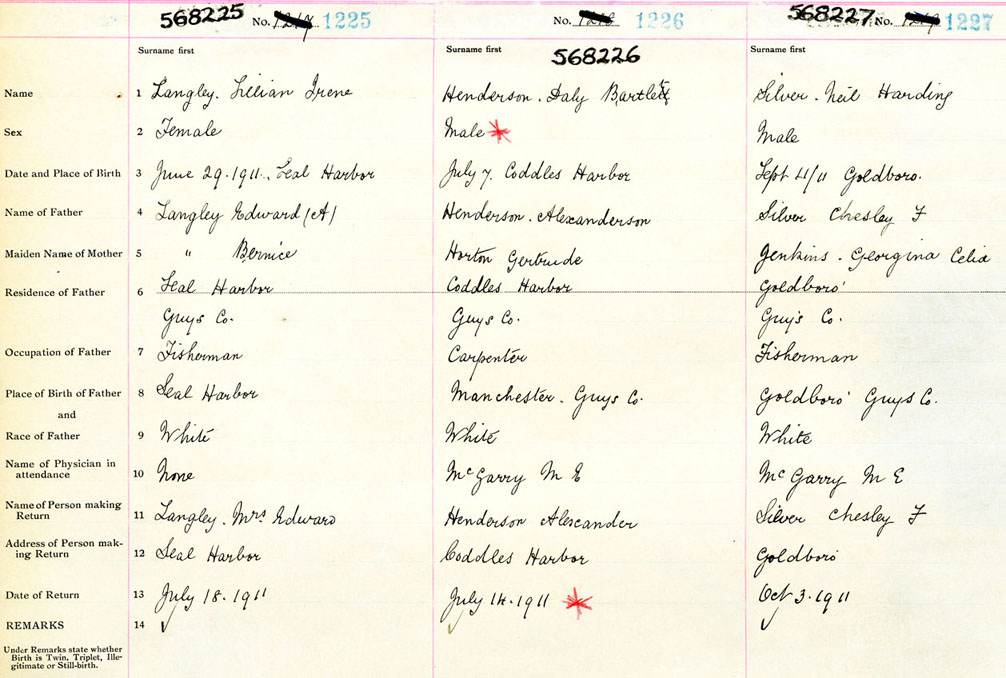 568225 No. 1225 No. 1226 568227 No. 1227
Surname first Surname first Surname first
568226
Name 1 Langley. Lillian Irene Henderson. Daly Bartlett Silver. Neil Harding
Sex 2 Female Male Male
Date and Place of Birth 3 June 29.1911. Seal Harbor July 7. Coddles Harbor Sept 4/11 Goldboro.
Name of Father 4 Langley Edward (A) Henderson. Alexanderson Silver Chesley F
Maiden Name of Mother 5 " Bernice Horton Gertrude Jenkins. Georgina Celia
Residence of Father 6 Seal Harbor Coddles Harbor Goldboro'
Guys Co. Guys Co. Guy's Co.
Occupation of Father 7 Fisherman Carpenter Fisherman
Place of Birth of Father 8 Seal Harbor Manchester. Guys Co. Goldboro' Guys Co.
and
Race of Father 9 White White White
Name of Physician in
attendance 10 None McGarry M E McGarry M E
Name of Person making
Return 11 Langley. Mrs Edward Henderson Alexander Silver Chesley F
Address of Person mak-
ing Return 12 Seal Harbor Coddles Harbor Goldboro
Date of Return 13 July 18.1911 July 14.1911 Oct 3.1911
REMARKS 14
Under Remarks state whether
Birth is Twin, Triplet, Ille-
gitimate or Still-birth.